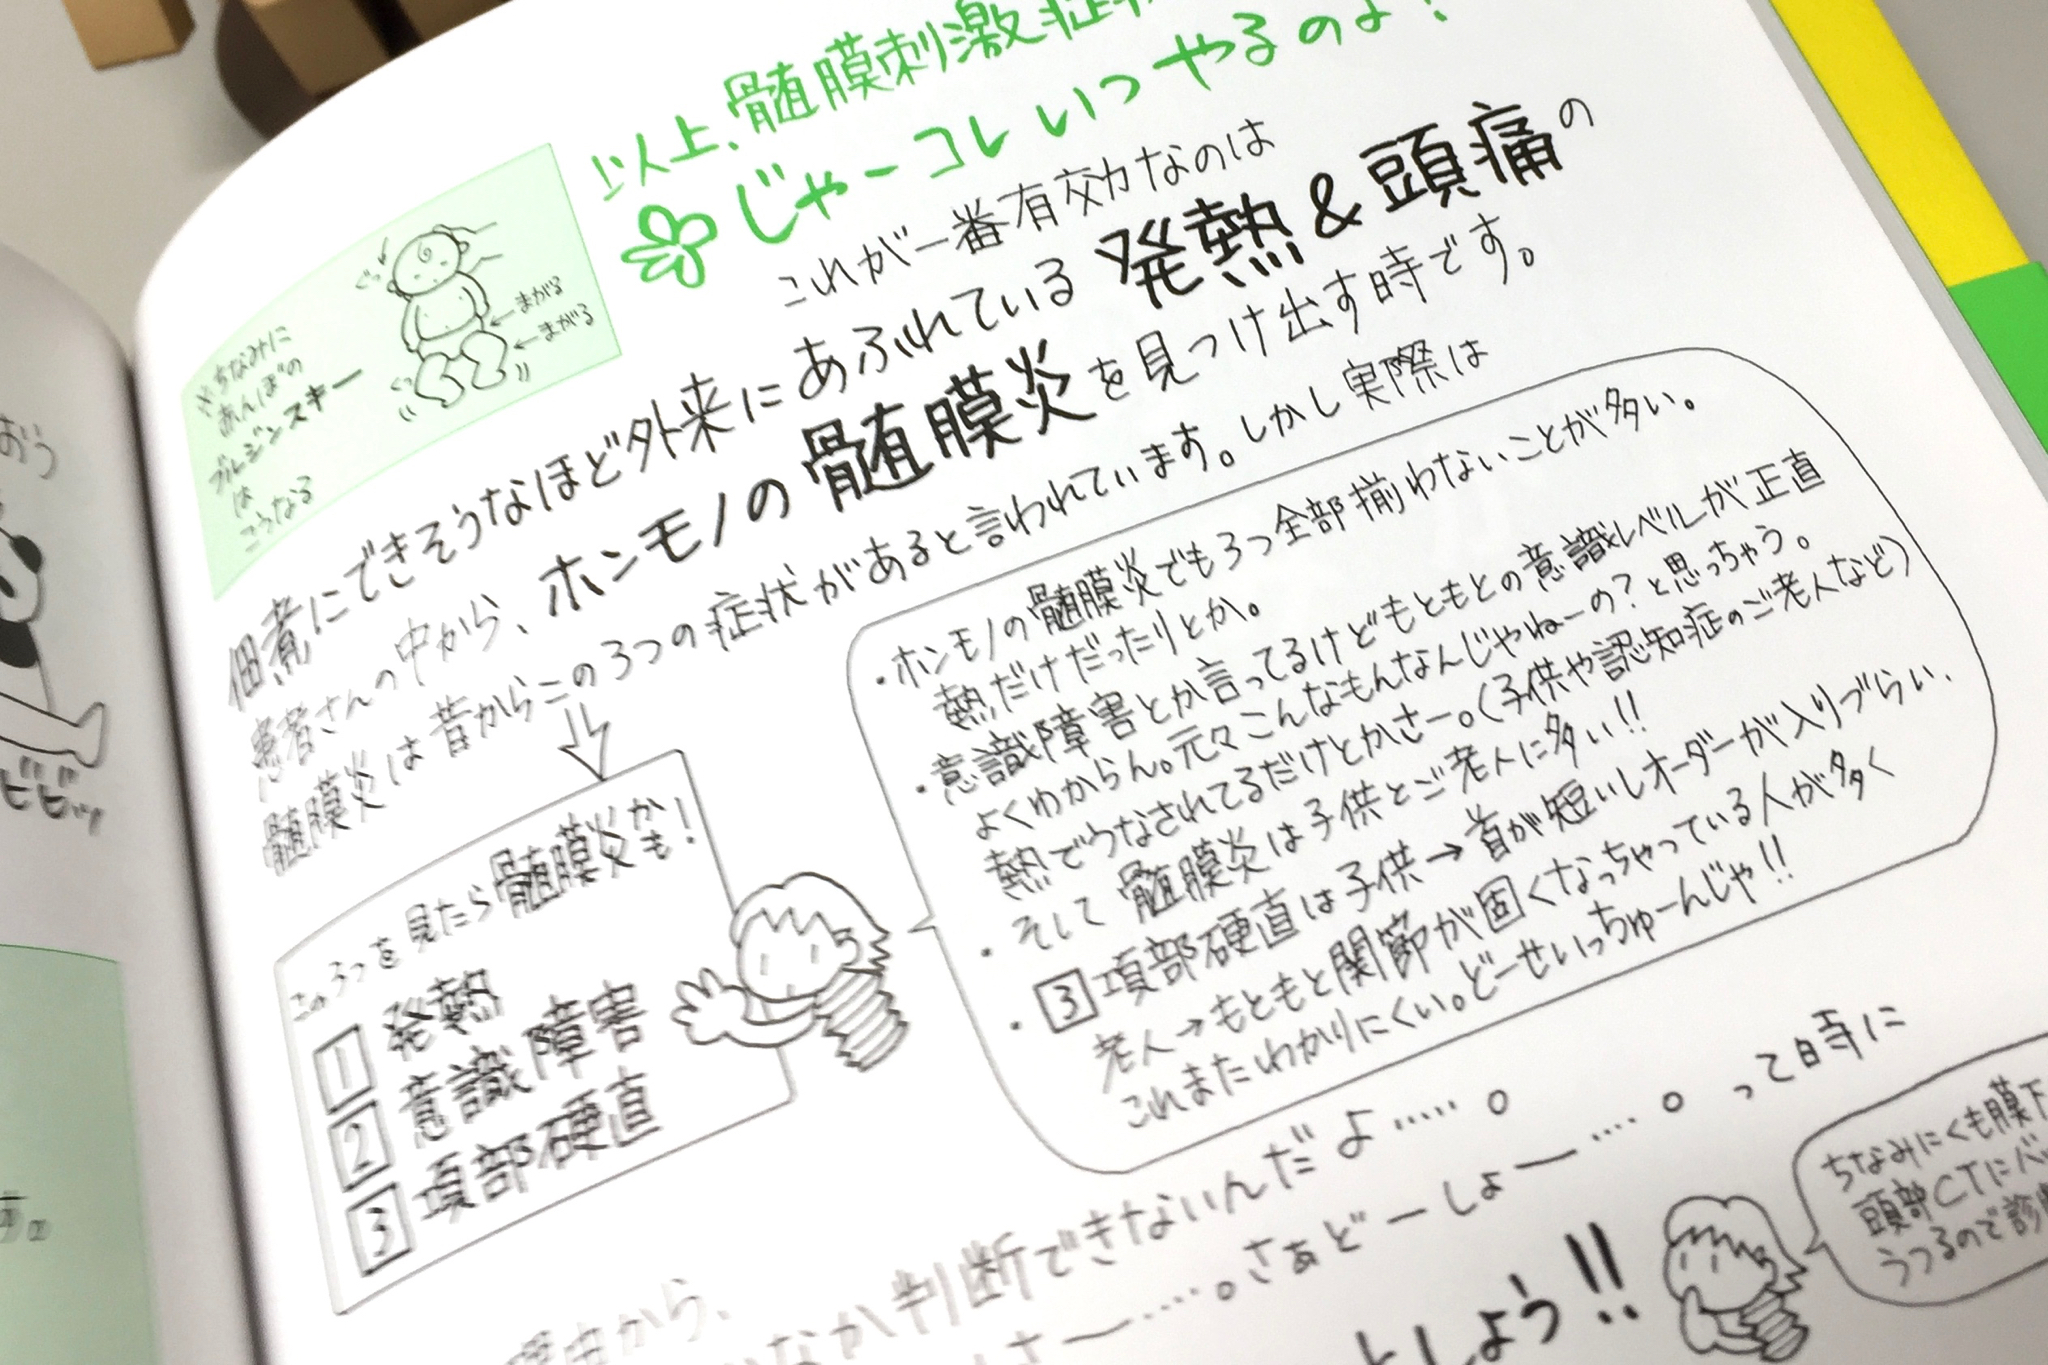 以上、髄膜刺激症
じゃーコレいつやるのよ!
これが一番有効なのは
佃煮にできそうなほど外来にあふれている発熱&頭痛の
患者さんの中から、ホンモノの髄膜炎を見つけ出す時です。
髄膜炎は昔からこの3つの症状があると言われています。しかし実際は
※ちなみに
あんぽの
ブルジンスキー
は
こうなる
ぐっ
まがる
まがる
この3つを見たら髄膜炎かも!
1 発熱
2 意識障害
3 項部硬直
・ホンモノの髄膜炎でも3つ全部揃わないことが多い。
熱だけだったりとか。
・意識障害とか言ってるけどもともとの意識レベルが正直
よくわからん。元々こんなもんなんじゃねーの?と思っちゃう。
熱でうなされてるだけとかさー。(子供や認知症のご老人など)
・そして髄膜炎は子供とご老人に多い!!
・3 項部硬直は子供→首が短いしオーダーが入りづらい、
老人→もともと関節が固くなっちゃっている人が多く
これまたわかりにくい。どーせいっちゅーんじゃ!!
理由から、
なか判断できないんだよ……。
さー……。さぁどーしょー……。って時に
としょう!!
ちなみにくも膜下
頭部CTにバ
うつるので診
おう
ビビッ
す。